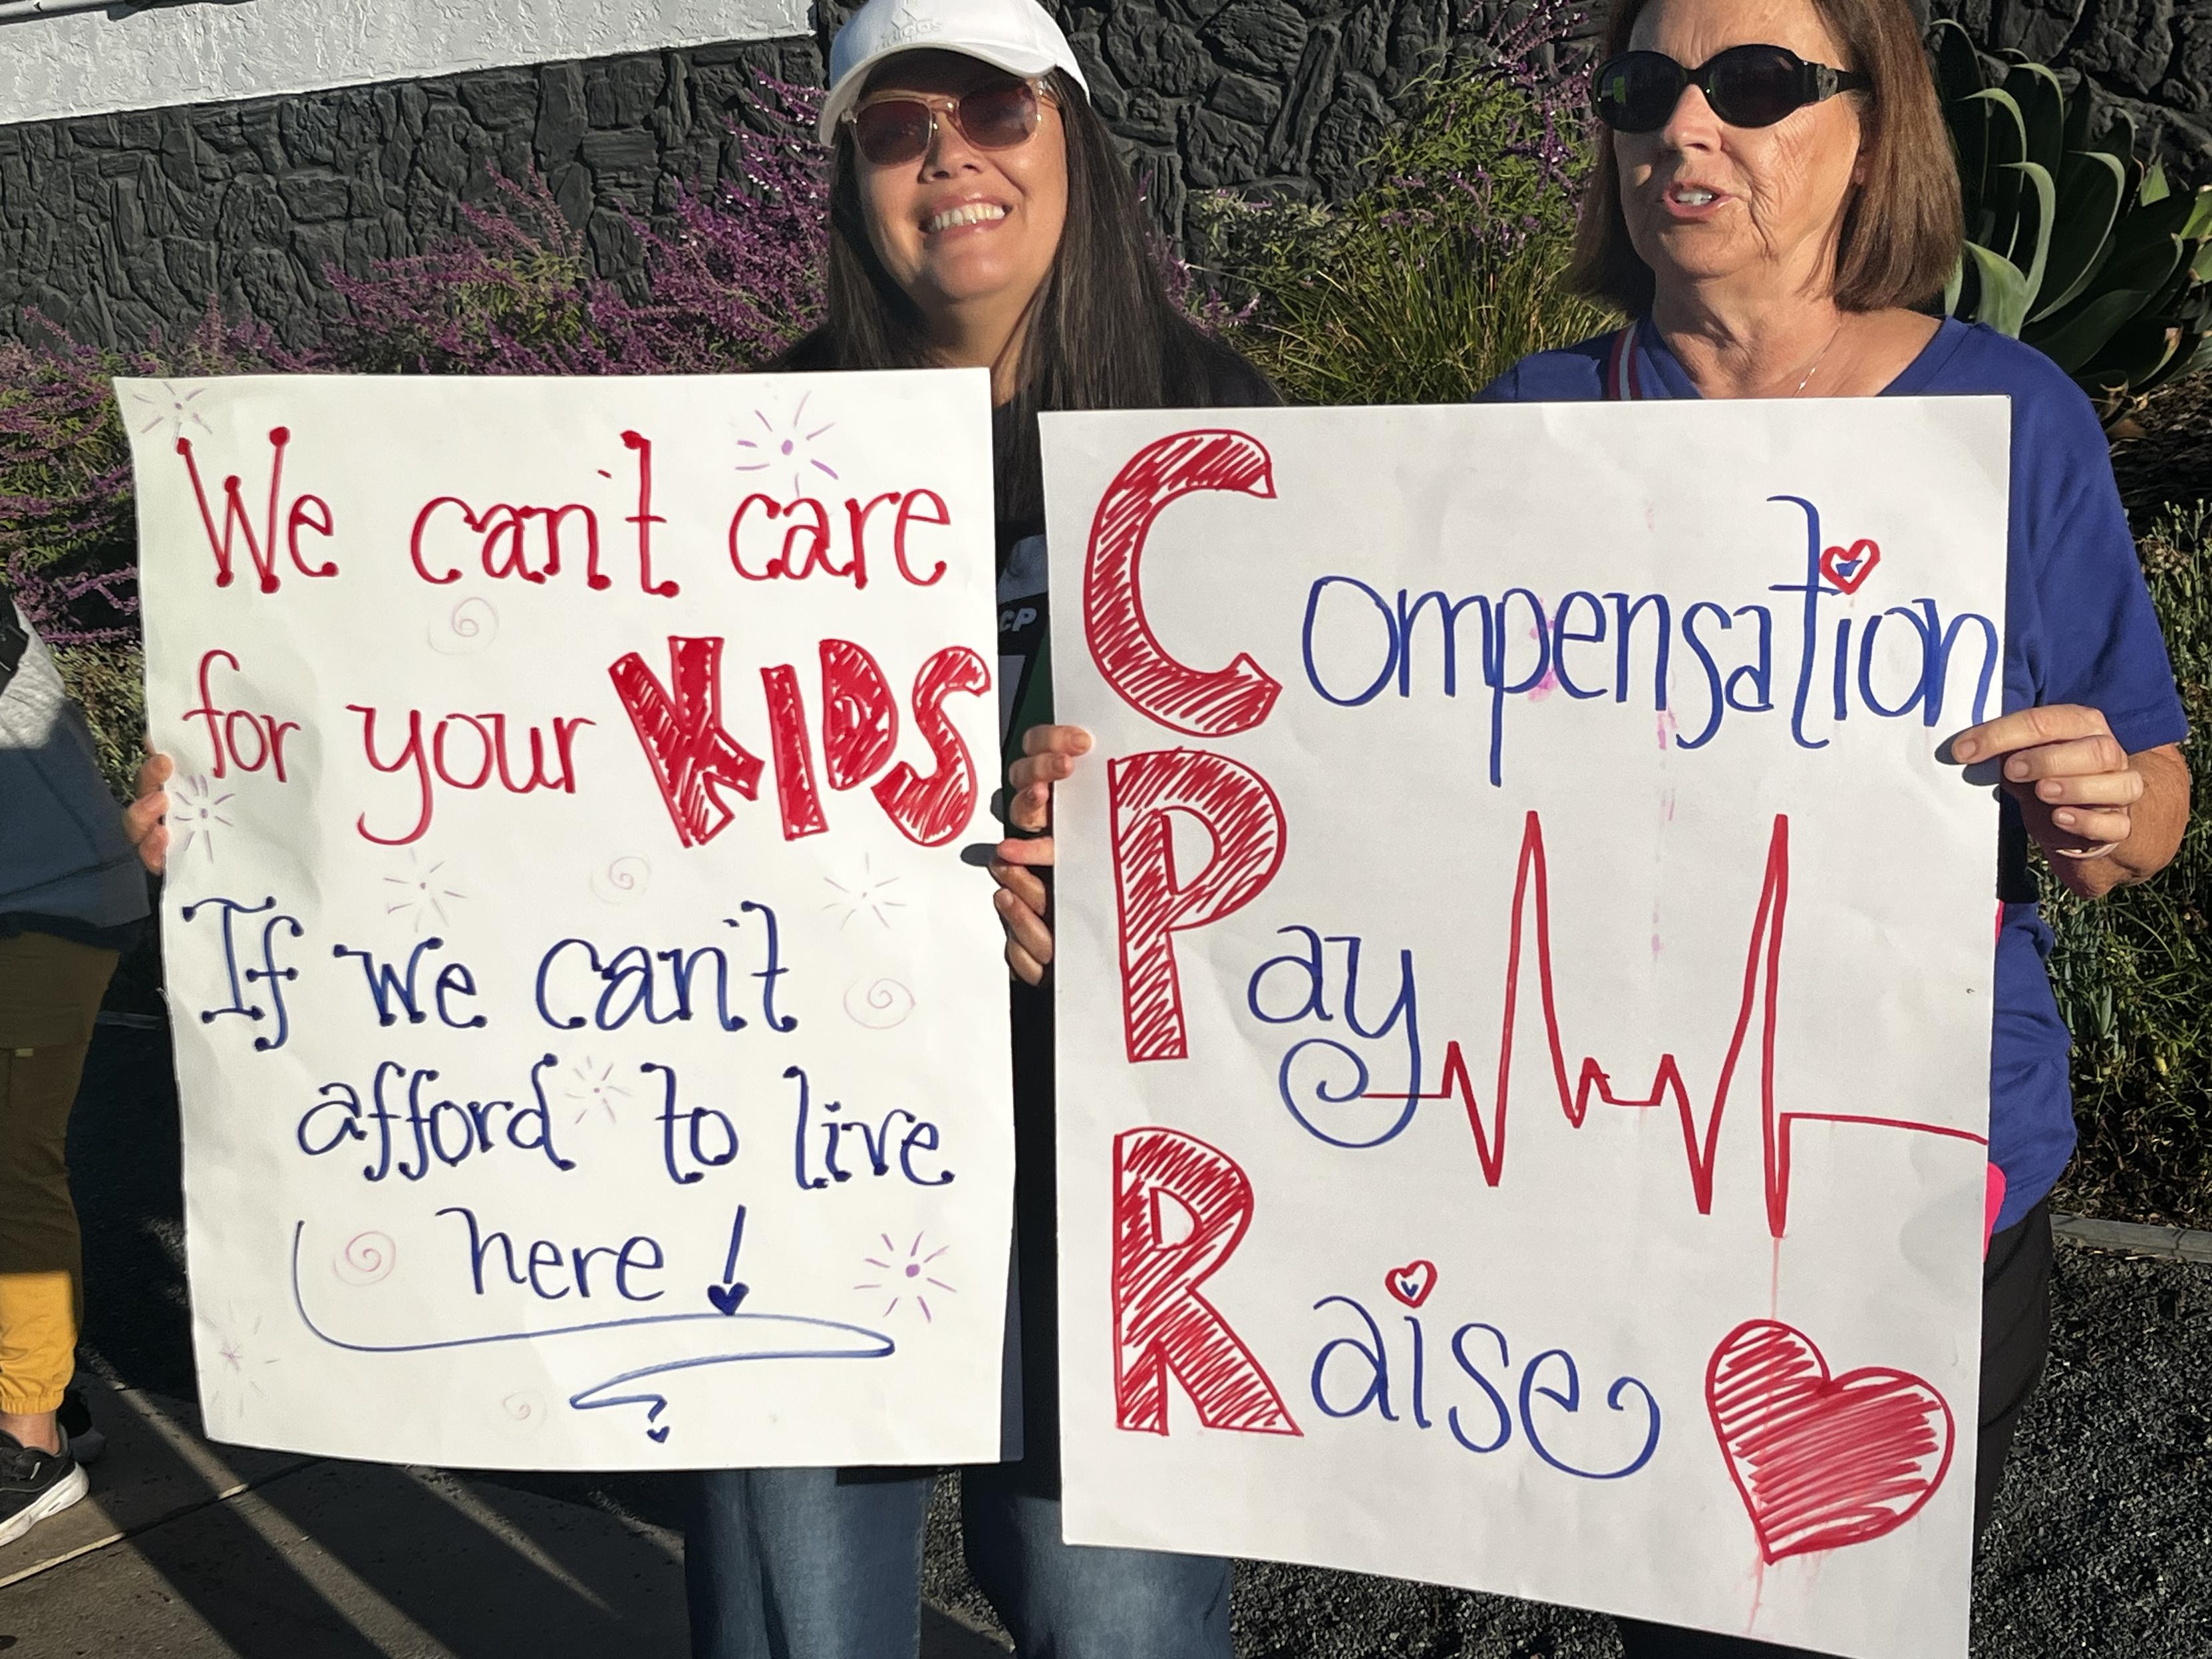 We can't care
for your KIDS
If we can't
afford to live
here!
Compensation
Pay
Raise
CP